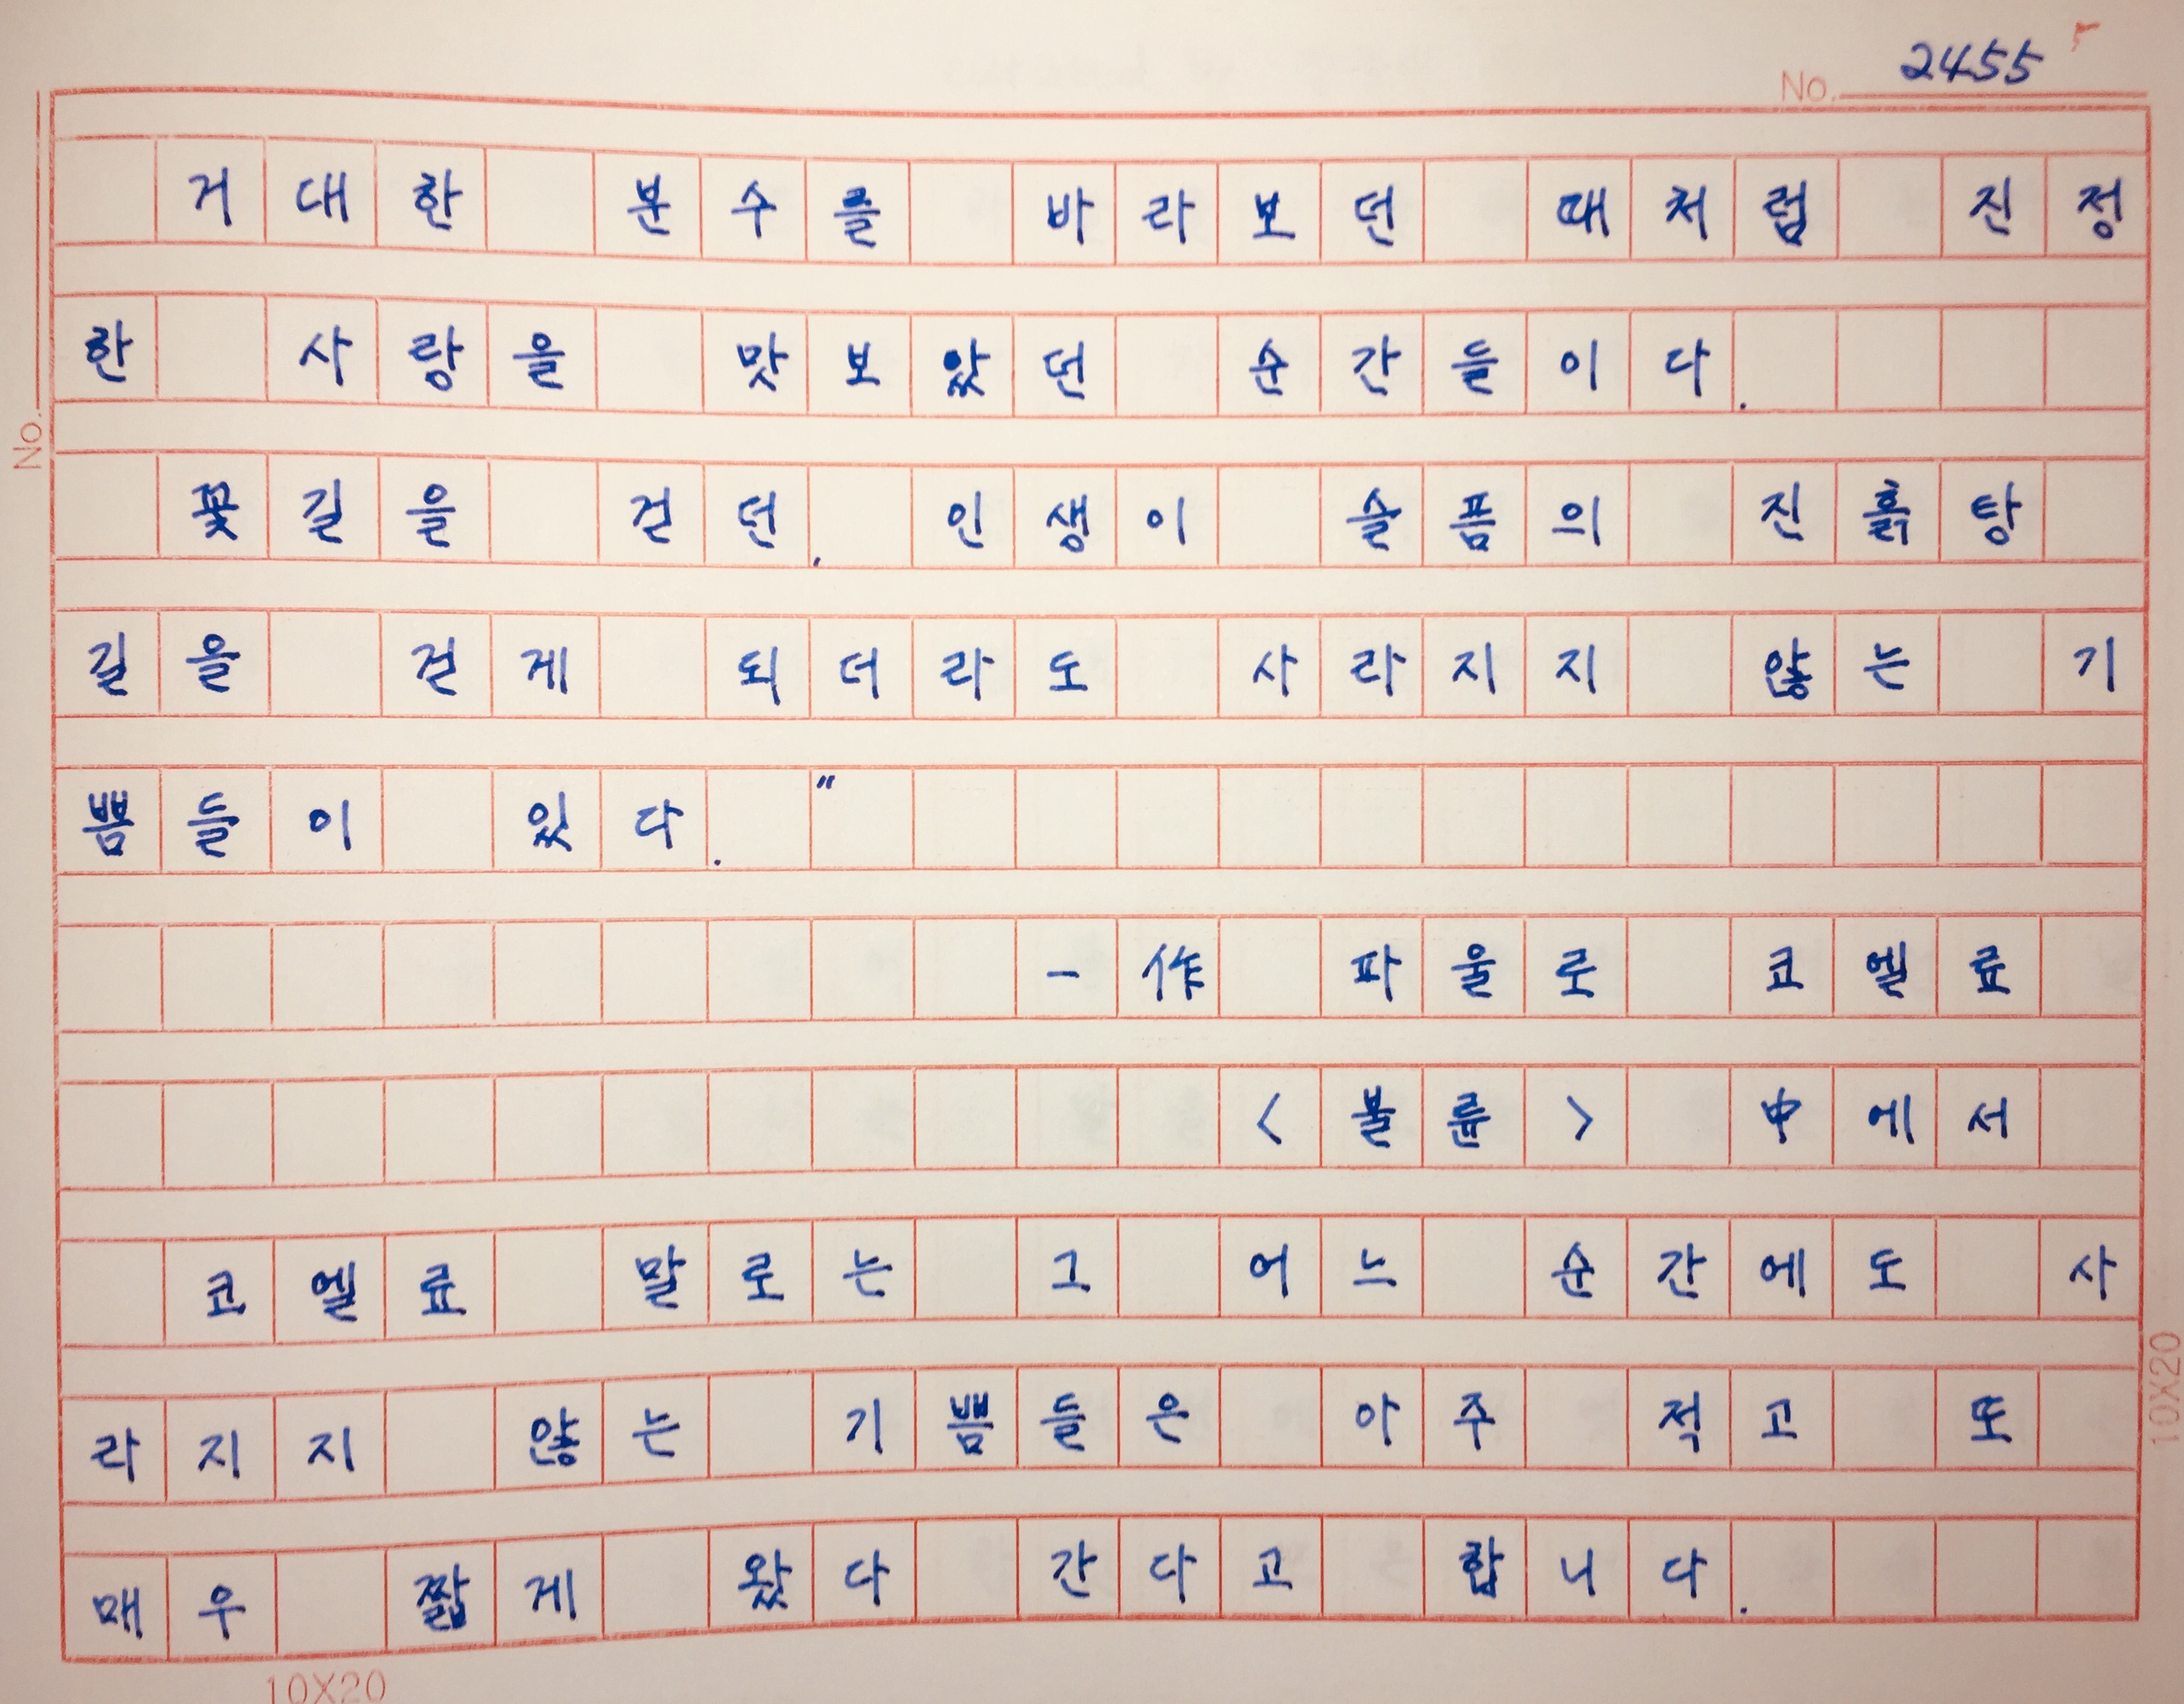 No. 2455
거대한 분수를 바라보던 때처럼 진정
한 사랑을 맛보았던 순간들이다.
꽃길을 걷던, 인생이 슬픔의 진흙탕
길을 걷게 되더라도 사라지지 않는 기
쁨들이 있다."
- 作 파울로 코엘료
<불륜> 中에서
코엘료 말로는 그 어느 순간에도 사
라지지 않는 기쁨들은 아주 적고 또
매우 짧게 왔다 간다고 합니다.
No.
10X20
10X20